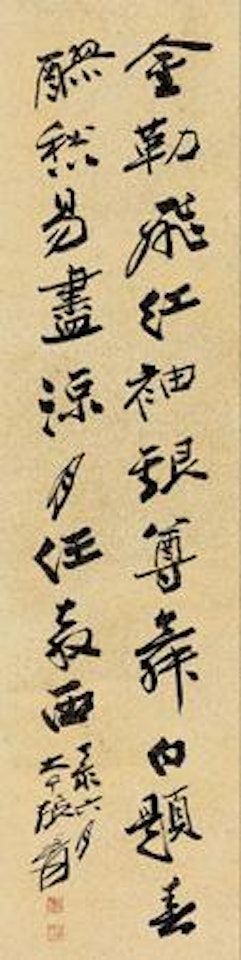 金勒飛紅袖銀尊舞白題春
醪愁易盡涼月任教西
丁亥六月
大千張爰